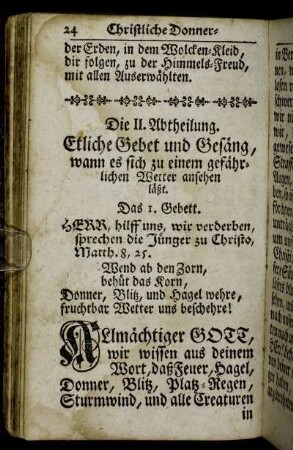 24 Christliche Donner-
der Erden, in dem Wolcken-Kleid,
dir folgen, zu der Himmels-Freud,
mit allen Auserwählten.
Die II. Abtheilung.
Etliche Gebet und Gesäng,
wann es sich zu einem gefähr-
lichen Wetter ansehen
läßt.
Das 1. Gebett.
HERR, hilff uns, wir verderben,
sprechen die Jünger zu Christo,
Matth. 8, 25.
Wend ab den Zorn,
behüt das Korn,
Donner, Blitz, und Hagel wehre,
fruchtbar Wetter uns beschehre!
Allmächtiger GOTT,
wir wissen aus deinem
Wort, daß Feuer, Hagel,
Donner, Blitz, Platz-Regen,
Sturmwind, und alle Creaturen
in